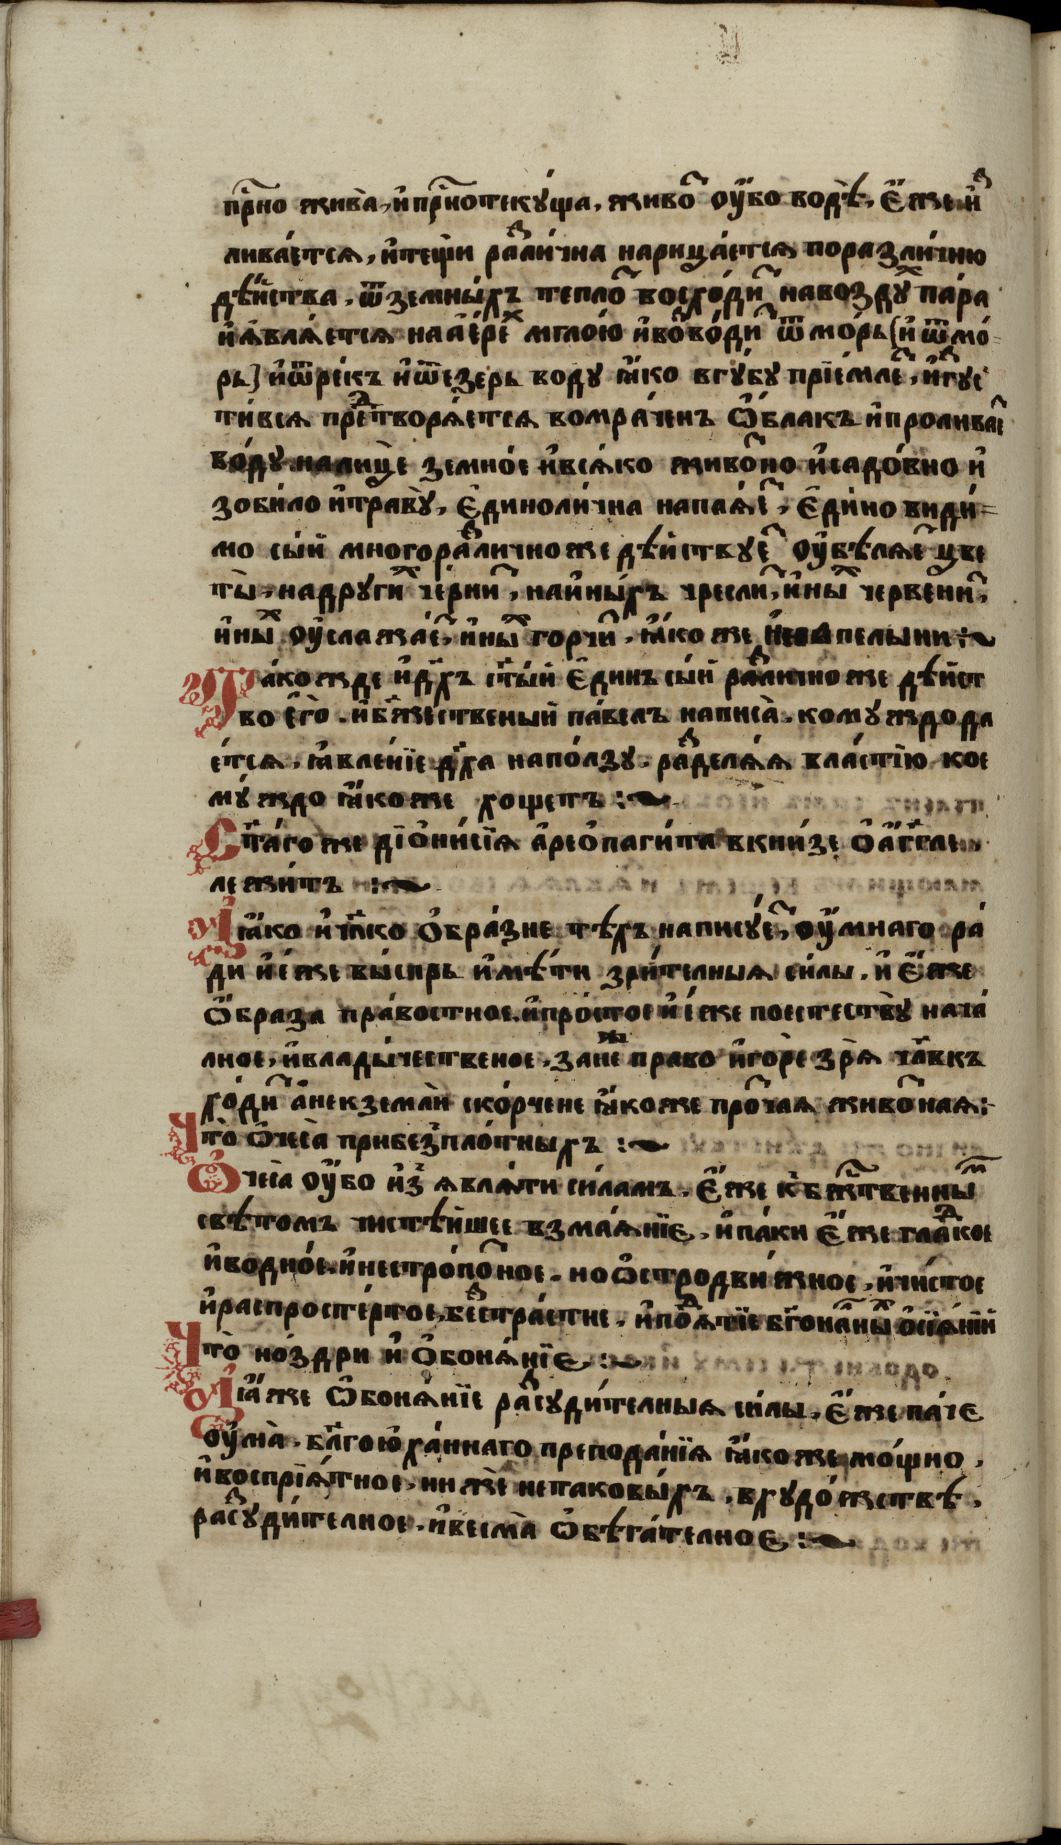 прⷭ҇но жива̀, и҆ прⷭ҇нотекꙋ́ща, живо̑ ᲂу҆́бо водѣ̀, є҆́же и҆ⷥ
лива́етсѧ, и҆ тещѝ раⷥли́чна нарица́етсѧ по разли́чїю
дѣ́йства, ѿ земны́хъ тепло̑ восхо́диⷮ на воздꙋⷯ па́ра
и҆ ꙗ҆влѧ́етсѧ на а҆е́рѣⷯ мгло́ю и҆ воⷥво́диⷮ ѿ мо́рь [и҆ ѿ мо́-
рь] и҆ ѿ рѣ́къ и҆ ѿ е҆зерь водꙋ ꙗ҆́ко в гꙋ́бꙋ прїе́млеⷮ, и҆ згꙋс
ти́всѧ преⷣтворѧ́етсѧ во мра́ченъ ѻ҆́блакъ и҆ пролива́еⷮ
во́дꙋ на лицѐ земно́е и҆ всѧ́ко живо́тно и҆ садо́вно и҆
зоби́ло и҆ травꙋ̀, є҆диноли́чна напаѧ́еⷮ, є҆ди́но види́-
мо сы́й многораⷥлично же дѣ́йствꙋеⷮ ᲂу҆бѣлѧ́еⷮ цве
ты̀, на другиⷯ черниⷮ, на и҆ны́хъ чреслиⷮ, и҆ныⷯ черве́ниⷮ,
и҆ныⷯ ᲂу҆слажа́еⷮ, и҆ныⷯ горчиⷮ, ꙗ҆́коже на пелыни :~
Та́кожде и҆ дх҃ъ ст҃ы́й є҆ди́нъ сы́й раⷥлично же дѣ́йст
во є҆гѡ̀. и҆ бж҃ественый па́велъ написа̀. комꙋждо да
е́тсѧ, ꙗ҆вле́нїе дх҃а на по́лзꙋ. раⷥделѧ́ѧ вла́стїю кое
мꙋ́ждо ꙗ҆́коже хощетъ :~
Ст҃а́го же дїѻни́сїѧ а҆реѻпаги́та в кни́зе ѻ҆ а҆́гг҃ле
лежи́тъ :~
А҆ ꙗ҆́ко и҆ чл҃ко ѻ҆бра́зне тѣ́хъ написꙋ́еⷮ, ᲂу҆́мнаго ра́
ди и҆ е҆́же вы́спрь и҆мѣ́ти зри́телныѧ си́лы. и҆ є҆́же
ѻ҆́браза пра́востное. и҆ про́стое и҆ е҆́же по естествꙋ̀ нача́
лное, и҆ влады́чественое, зане пра́во и҆ горѐ зрѧ̀ чл҃вкъ
хо́диⷮ а҆ не к земли́ ско́рчене ꙗ҆́коже про́чаѧ живо́тнаѧ:
Что̀ ѻ҆чеса̀ при безпло́тныхъ :~
Ѻ҆чеса̀ ᲂу҆́бо и҆з̾ ꙗ҆влѧ́ти си́ламъ. є҆́же к̾ бжⷭ҇твенныⷨ
свѣ́томъ чистѣ́йшее взмаѧ́нїе, и҆ па́ки є҆́же глаⷣкое
и҆ водно́е. и҆ нестропо́тное. но ѻ҆стродви́жное, и҆ чи́стое
и҆ распросте́ртое, беⷥстра́стне. и҆ поⷣѧтїе бг҃онача́лныⷯ ѻ҆сїѧ́нїй
Что̀ но́здри и҆ ѻ҆бонѧ́нїе :~
А҆ ꙗ҆́же ѻ҆бонѧ́нїе раⷥсꙋди́телныѧ си́лы. є҆́же па́че
ᲂу҆ма̀. бл҃гоꙋха́ннаго препода́нїѧ ꙗ҆́коже мо́щно,
и҆ воспрїѧ́тное. ниже нетаковы́хъ, в хꙋдо́жествѣ,
раⷥсꙋди́телное. и҆ весма̀ ѻ҆бѣга́телное :~